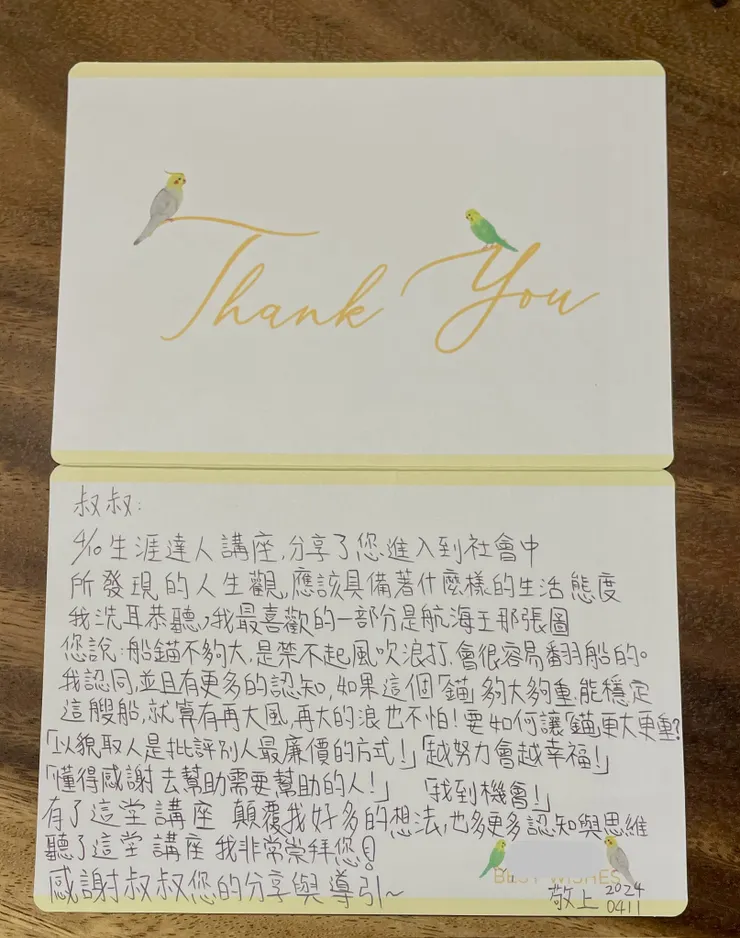 Thank You
叔叔:
4/10生涯達人講座,分享了您進入到社會中
所發現的人生觀,應該具備著什麼樣的生活態度
我洗耳恭聽,我最喜歡的一部分是航海王那張圖
您說:船錨不夠大,是禁不起風吹浪打,會很容易翻船的。
我認同,並且有更多的認知,如果這個「錨」夠大夠重,能穩定
這艘船,就算有再大風,再大的浪也不怕!要如何讓「錨」更大更重?
「以貌取人是批評別人最廉價的方式!」「越努力會越幸福!」
「懂得感謝去幫助需要幫助的人!」 「找到機會!」
有了這堂講座 顛覆我好多的想法,也多更多認知與思維
聽了這堂講座 我非常崇拜您!
感謝叔叔您的分享與導引~
BEST WISHES
敬上 2024
0411